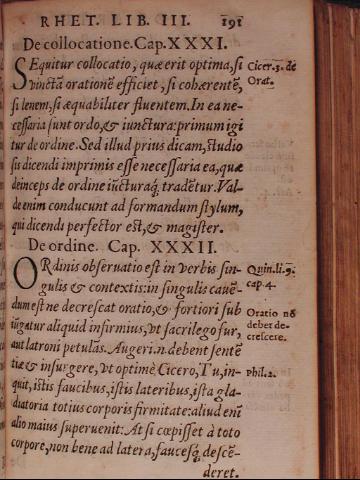 RHET. LIB. III. 191
De collocatione. Cap. XXXI.
SEquitur collocatio, quæ erit optima, si
vinctā orationē efficiet, si cohærentē,
si lenem, si æquabiliter fluentem. In ea ne-
cessaria sunt ordo, & iunctura: primum igi
tur de ordine. Sed illud prius dicam, studio
sis dicendi imprimis esse necessaria ea, quæ
deinceps de ordine iūcturaq́; tradētur. Val-
de enim conducunt ad formandum stylum,
qui dicendi perfector est, & magister.
Cicer. 3. de
Orat.
De ordine. Cap. XXXII.
ORdinis obseruatio est in verbis sin-
gulis & contextis: in singulis cauē-
dum est ne decrescat oratio, & fortiori sub
iūgatur aliquid infirmius, vt sacrilego fur,
aut latroni petulās. Augeri .n. debent sentē
tiæ & insurgere, vt optimè Cicero, Tu, in-
quit, istis faucibus, istis lateribus, ista gla-
diatoria totius corporis firmitate: aliud enī
alio maius superuenit: At si cœpisset à toto
corpore, non bene ad latera, faucesq́; descē-
deret.
Quin. li. 9.
cap. 4.
Oratio nō
debet de-
crescere.
Phil. 2.